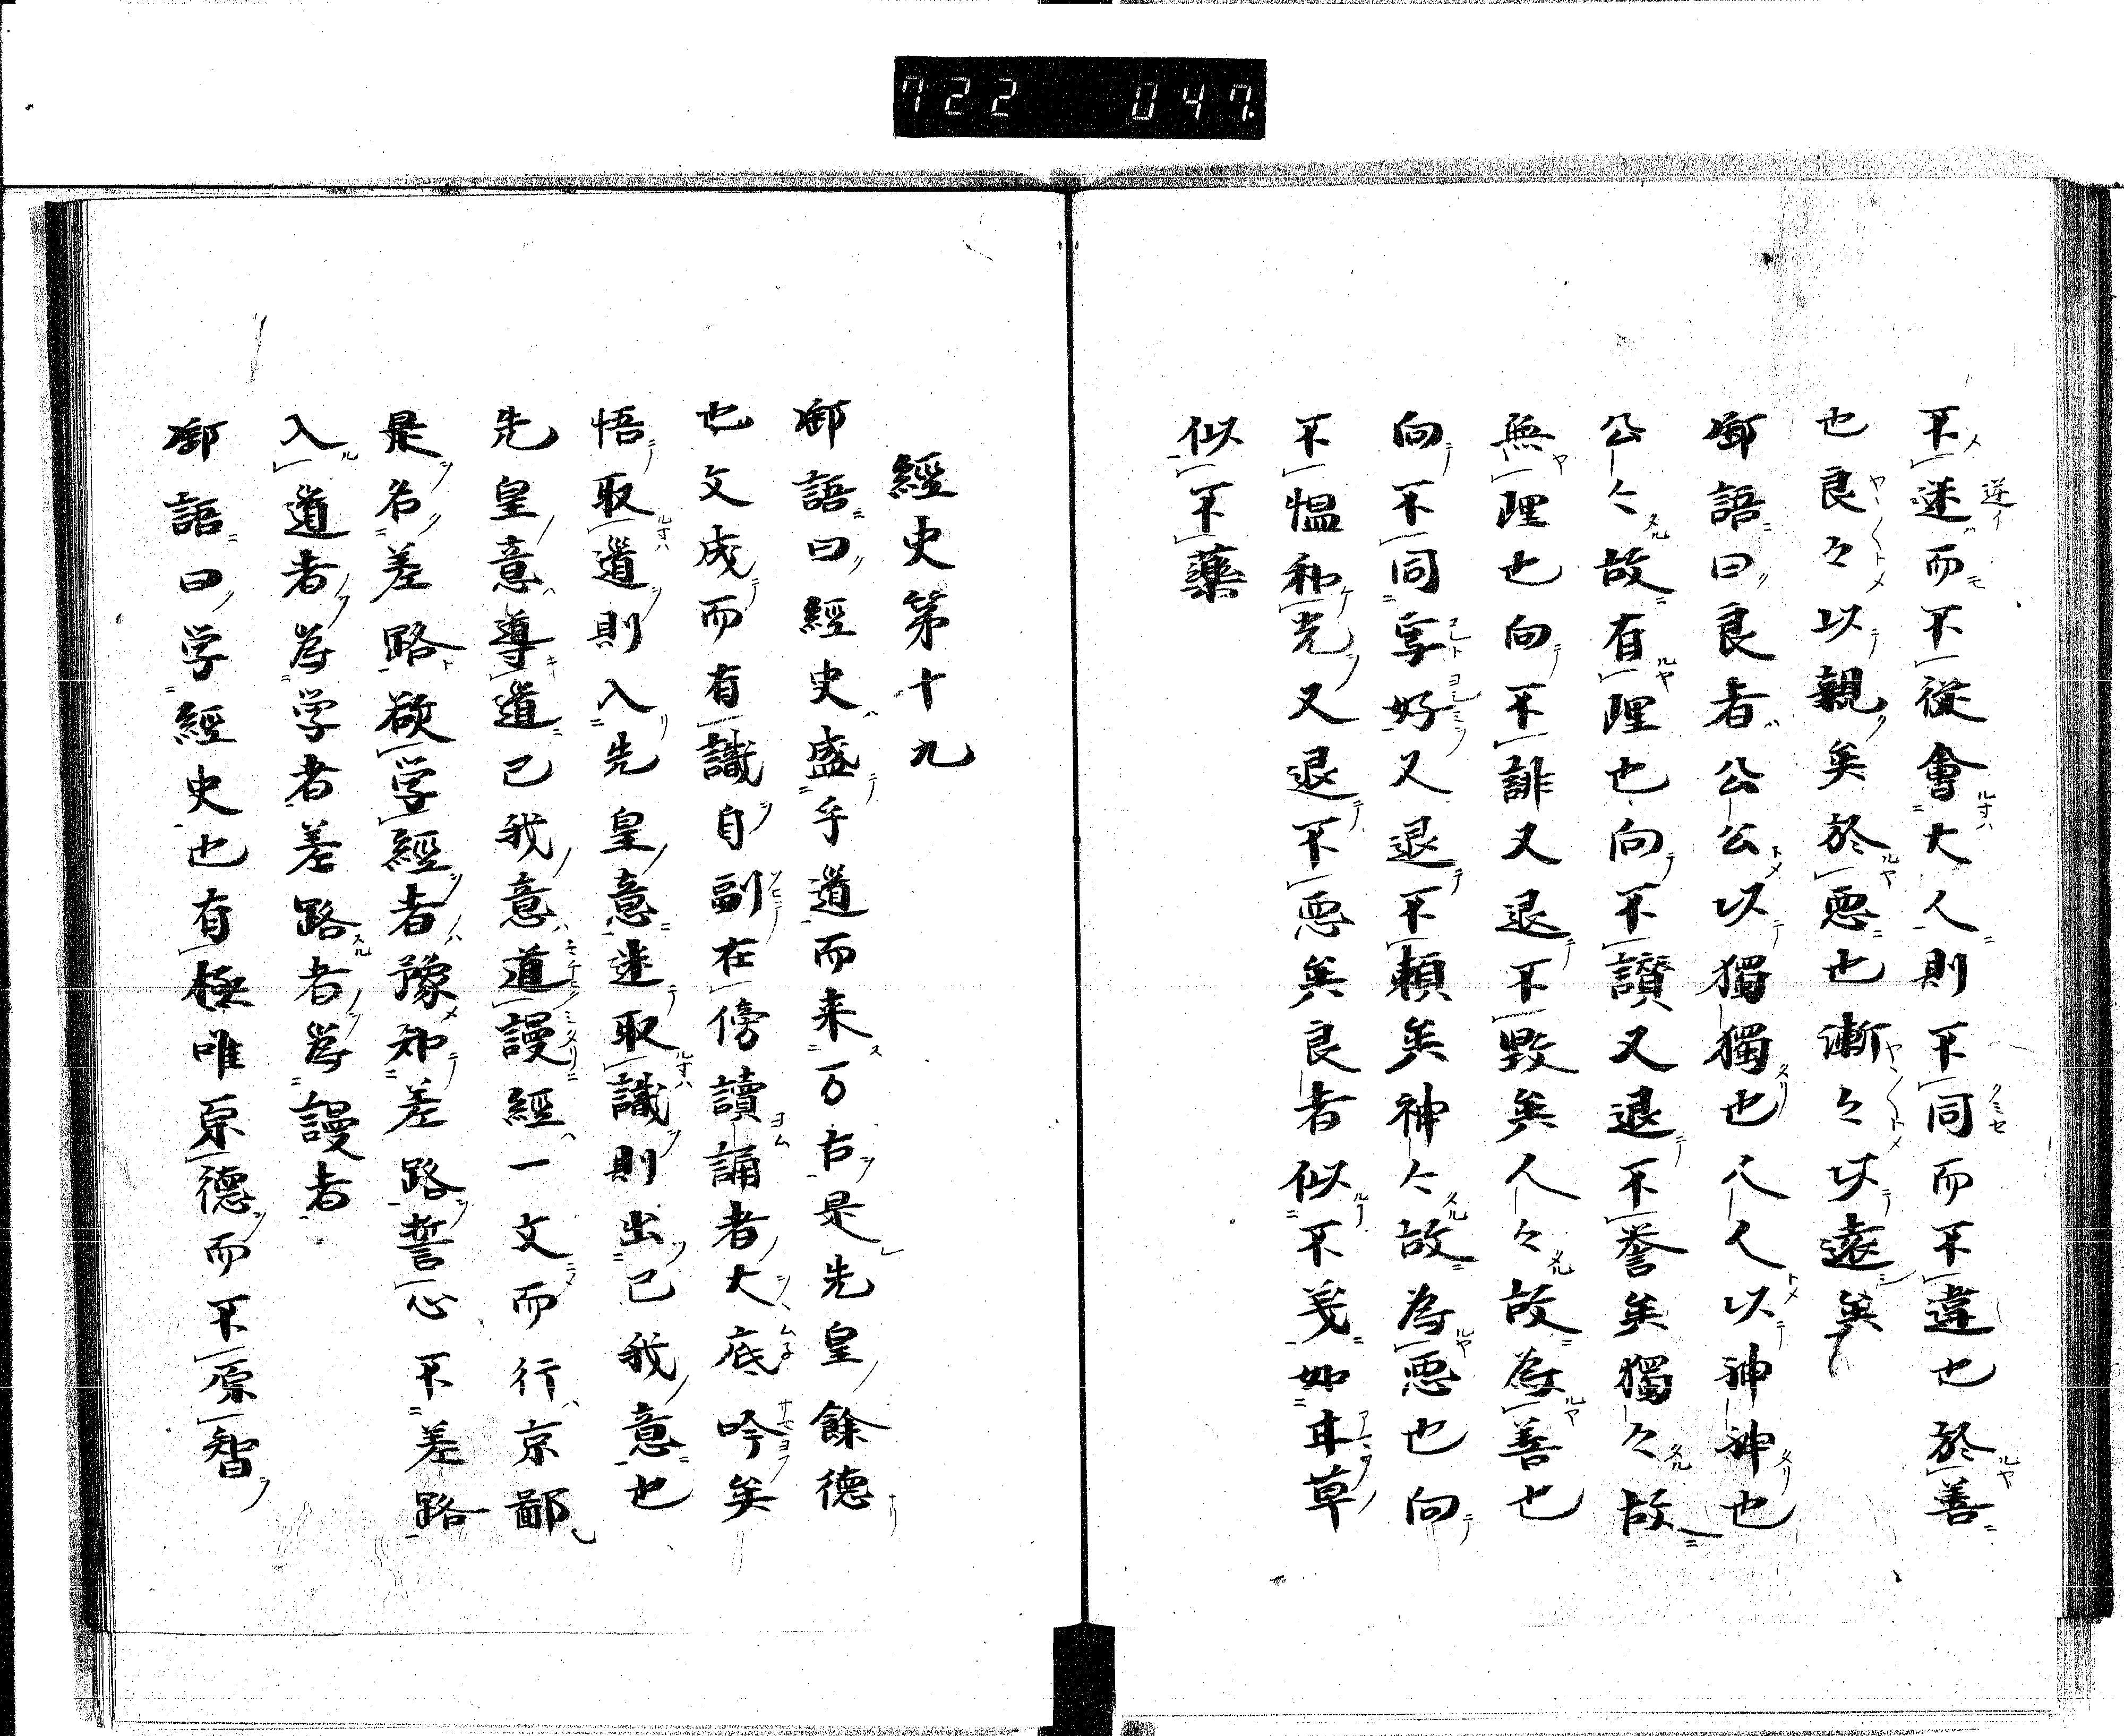 722 047.
不迷而不從會大人則不同而不違也於善
也良々以親矣於悪也漸々以遠矣
御語曰良者公公以獨獨也人人以神神也
公々故有理也向不讃又退不誉矣獨々故
無理也向不誹又退不毀矣人々故為善也
向不同享好又退不頼矣神々故為悪也向
不愠和光又退不悪矣良者似不美如甘草
似不藥
經史第十九
御語曰經史盛乎道而来万古是先皇餘德
也文成而有識自副在傍讀誦者大底吟矣
悟取道則入先皇意迷取識則出己我意也
先皇意導道己我意道謾經一文而行京鄙
是名差路欲学經者豫知差路誓心不差路
入道者為学者差路者為謾者
御語曰学經史也有極唯原德而不原智